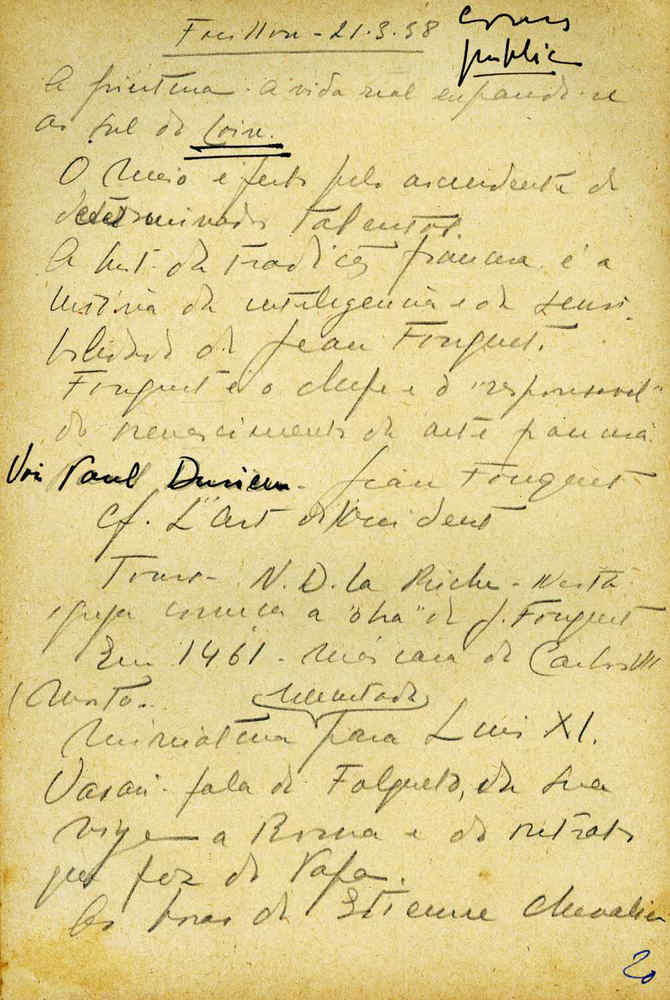 Focillon - 21.3.38 cours
public
A pintura. A vida real expande-se
ao sul do Loire.
O meio é feito pelo ascendente de
determinados talentos.
A hist. da tradição francesa é a
história da inteligencia e da sensi
bilidade de Jean Fouquet.
Fouquet é o chefe e o "responsavel"
do renascimento da arte francesa
Voir Paul Durrieu - Jean Fouquet
cf. L'Art d'Occident
Tours - N.D. la Riche - Nesta
igreja começa a "obra" de J. Fouquet
Em 1461 - máscara de Carlos VII
(morto.
miniatura para Luis XI.
Vasari fala de Folqueto, da sua
viagem a Roma e do retrato
que fez do Papa.
As horas de Etienne Chevalier
20